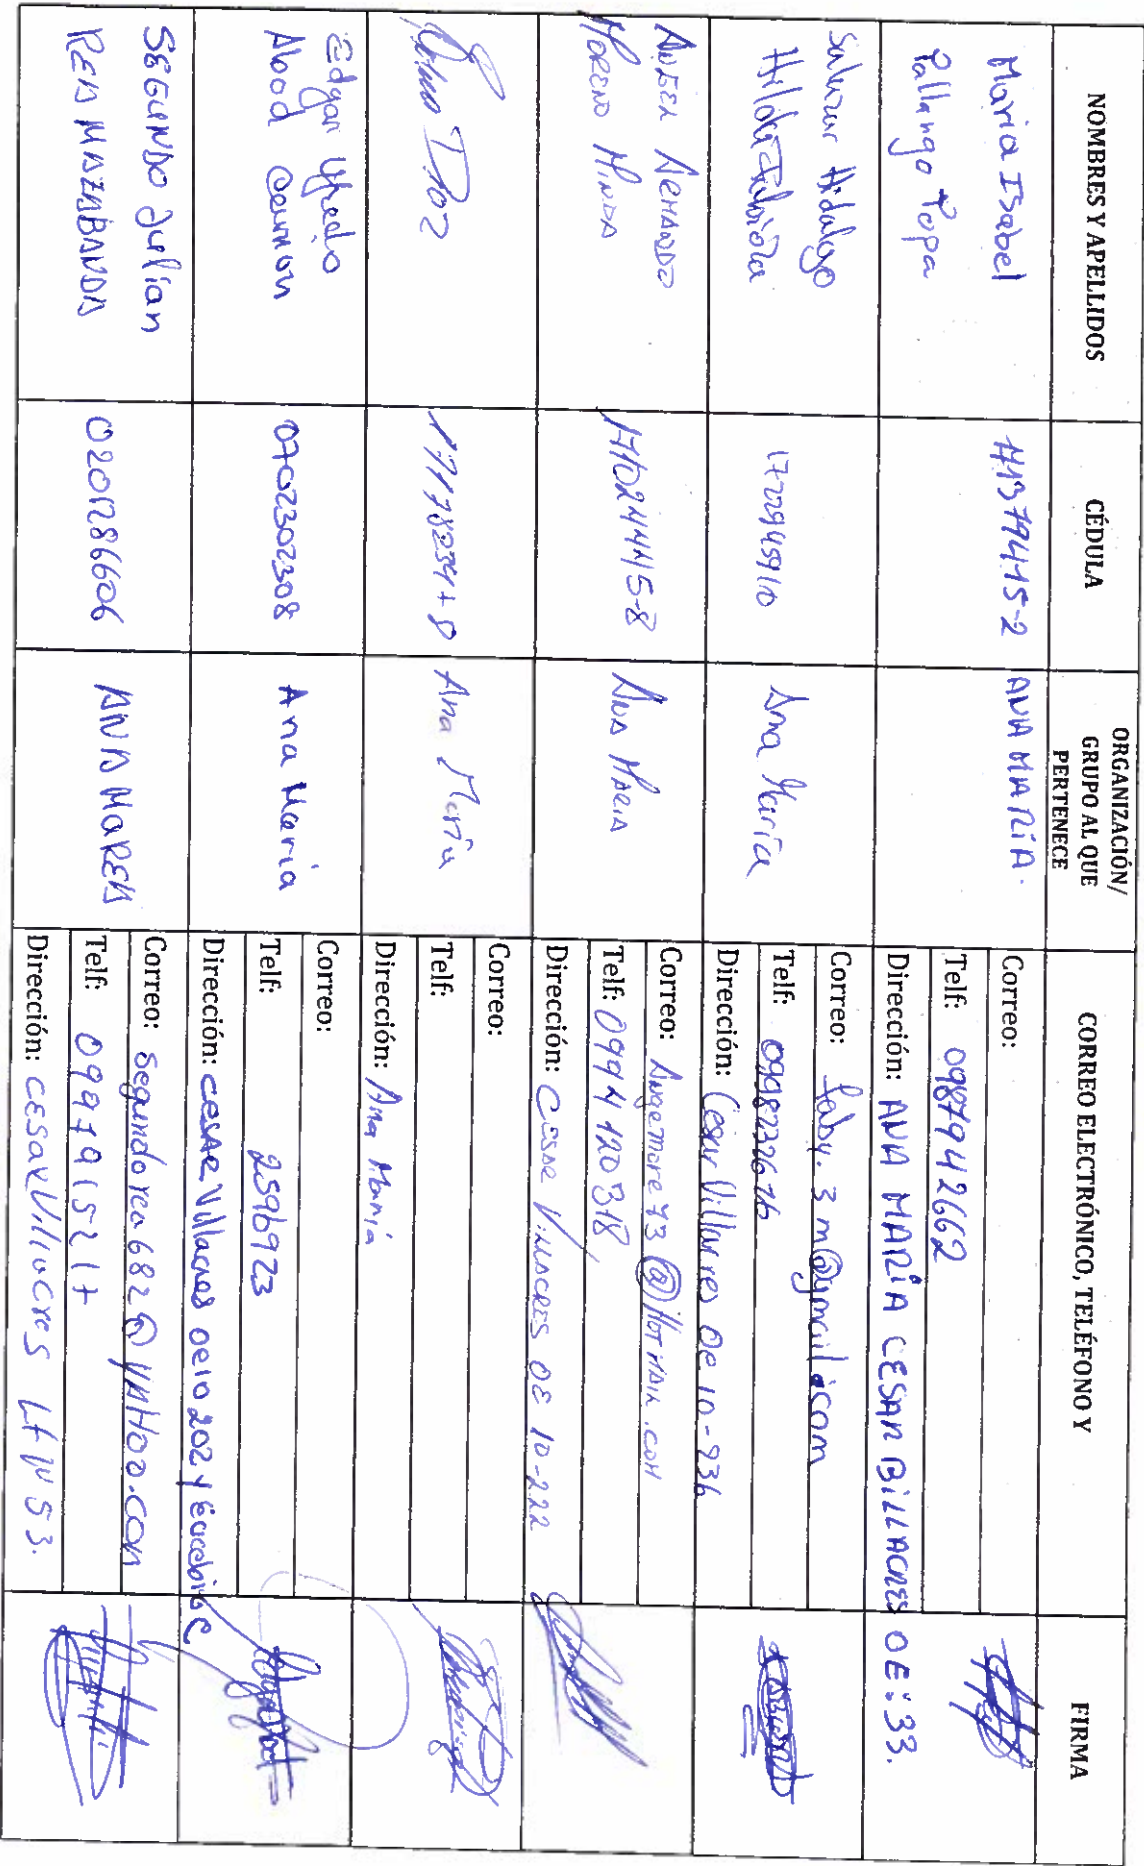 NOMBRES Y APELLIDOS
CÉDULA
ORGANIZACIÓN/
GRUPO AL QUE
PERTENECE
CORREO ELECTRÓNICO, TELÉFONO Y
FIRMA
Maria Isabel
Pallango Topa
ANA MARIA.
Correo:
Telf: 0987942662
Dirección: ANA MARIA CESAR BILLACRES OE:33.
Salazar Hidalgo
Hilda Fabiola
1722945910
Ana María
Correo: faby.3m@gmail.com
Telf: 0998232676
Dirección: Cesar Villacres Oe 10-236
ANGEL ARMANDO
MORENO MINDA
170244415-8
ANA MARIA
Correo: Angemore73@HOTMAIL.COM
Telf: 0994120318
Dirección: CESAR VILLACRES OE 10-222
Ana María
Correo:
Telf:
Dirección: Ana María
Edgar Alfredo
Abad
0702302308
Ana María
Correo:
Telf: 2596923
Dirección: CESAR Villacres oe10 202 y
SEGUNDO Julian
REA MAZABANDA
0201286606
ANA MAREA
Correo: segundorea682@YAHOO.COM
Telf: 0997915217
Dirección: CESAR Villacres Lt N 53.